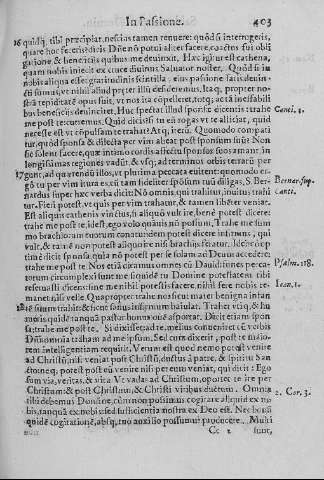 In Passione. 403
16 quidq̃. tibi præcipiat, nescius tamen renuere: quòd si interrogetis,
quare hoc feceris? dicis Dñe nō potui aliter facere, coactus sui obli
gatione & beneficiis quibus me deuinxit. Hæc igitur est cathena,
quam nobis iniecit ex cruce diuinus Saluator noster. Quòd si in
nobis aliqua esset gratitudinis scintilla, eius passione satis deuin-
cti sumus, vt nihil aliud præter illū desideremus. Itaq; propter no-
strā tepiditatē opus fuit, vt nos ita cōpelleret, totq; actā ineffabili
bus beneficiis deuinciret. Huc spectat illud sponsæ dicentis: trahe Canti. 1.
me post te: curremus. Quid dicis? si tu eū rogas vt te alliciat, quid
necesse est vt cōpulsam te trahat? Atq; iterū. Quomodo compati
tur, quòd sponsa & dilecta per vim abeat post sponsum suū? Non
sic solent facere, quæ intimo cordis affectu sponsos suos amant: in
longissimas regiones vadūt, & vsq; ad terminos orbis terrarū per
17 gunt, ad quærendū illos, vt plurima peccata euitent: quomodo er-
gò tu per vim itura es, cū tam fideliter spōsum tuū diligas, S. Ber- Bernar. sup.
nardus super hæc verba dicit: Nō omnis, qui trahitur, inuitus trahi Cantic.
tur. Fieri potest, vt quis per vim trahatur, & tamen libēter veniat.
Est aliquis cathenis vinctus, si aliquò vult ire, benè potest dicere:
trahe me post te, id est, ego volo quauis nō possum. Trahe me sum
mo brachiorum tuorum conatu. Idem potest dicere infirmus, qui
vult, & tamē non potest aliquò ire nisi brachiis feratur. Idcirco op
timè dicit sponsa, quia nō potest per se solam ad Deum accedere:
trahe me post te. Nos etiā oramus omnes cū Dauid: funes pecca- Psalm. 118.
torum circumplexi sunt me, siquidē tu Domine potestatem tibi
reseruasti dicens: sine me nihil potestis facere, nihil sine nobis re- Ioan. 1.
manet nisi velle. Quapropter trahe nos fateri mater benigna infan
18 tē suum trahit: & sicut soluis infirmum baiulat. Trahe vtiq; & hu
meris, quidē tanquā pastor bonus ouē asportat. Dicit etiam spon
sa: trahe me post te. Si dixisset: ad te, melius conueniret cū verbis
Dñi: omnia traham ad me ipsum. Sed cum dixerit, post te, maio-
rem intelligentiam requisit. Verum est quod nemo potest venire
ad Christū, nisi veniat post Christū, ductus à patre, & spiritu San
sto: neq; potest post eū venire nisi per eum veniat, qui dicit: Ego
sum via, veritas, & vita. Vt vadas ad Christum, oportet te ire per
Christum: & post Christum, & Christi viribus ductum. Omnia 2. Cor. 3.
tibi debemus Domine, cùm non possimus cogitare aliquid ex no
bis, tanquā ex nobis, sed sufficientia nostra ex Deo est. Nec bonū
quidē cogitationē, absq; tuo auxilio possumus producere. Multi
Cc 2 sunt,